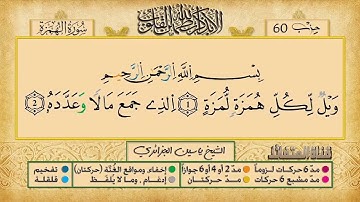 حزب 60
ألا بذكر الله تطمئن القلوب
سورة الهمزة
بِسْمِ اللَّهِ الرَّحْمَٰنِ الرَّحِيمِ
وَيْلٌ لِّكُلِّ هُمَزَةٍ لُّمَزَةٍ 1 الَّذِي جَمَعَ مَالًا وَعَدَّدَهُ 2
الشيخ ياسين الجزائري
مدّ 6 حركات لزوماً مدّ 2 أو 4 أو 6 جوازاً إخفاء، ومواقع الغُنَّة (حركتان) تفخيم
مدّ مشبع 6 حركات مدّ حركتان إدغام، وما لا يُلفظ قلقلة